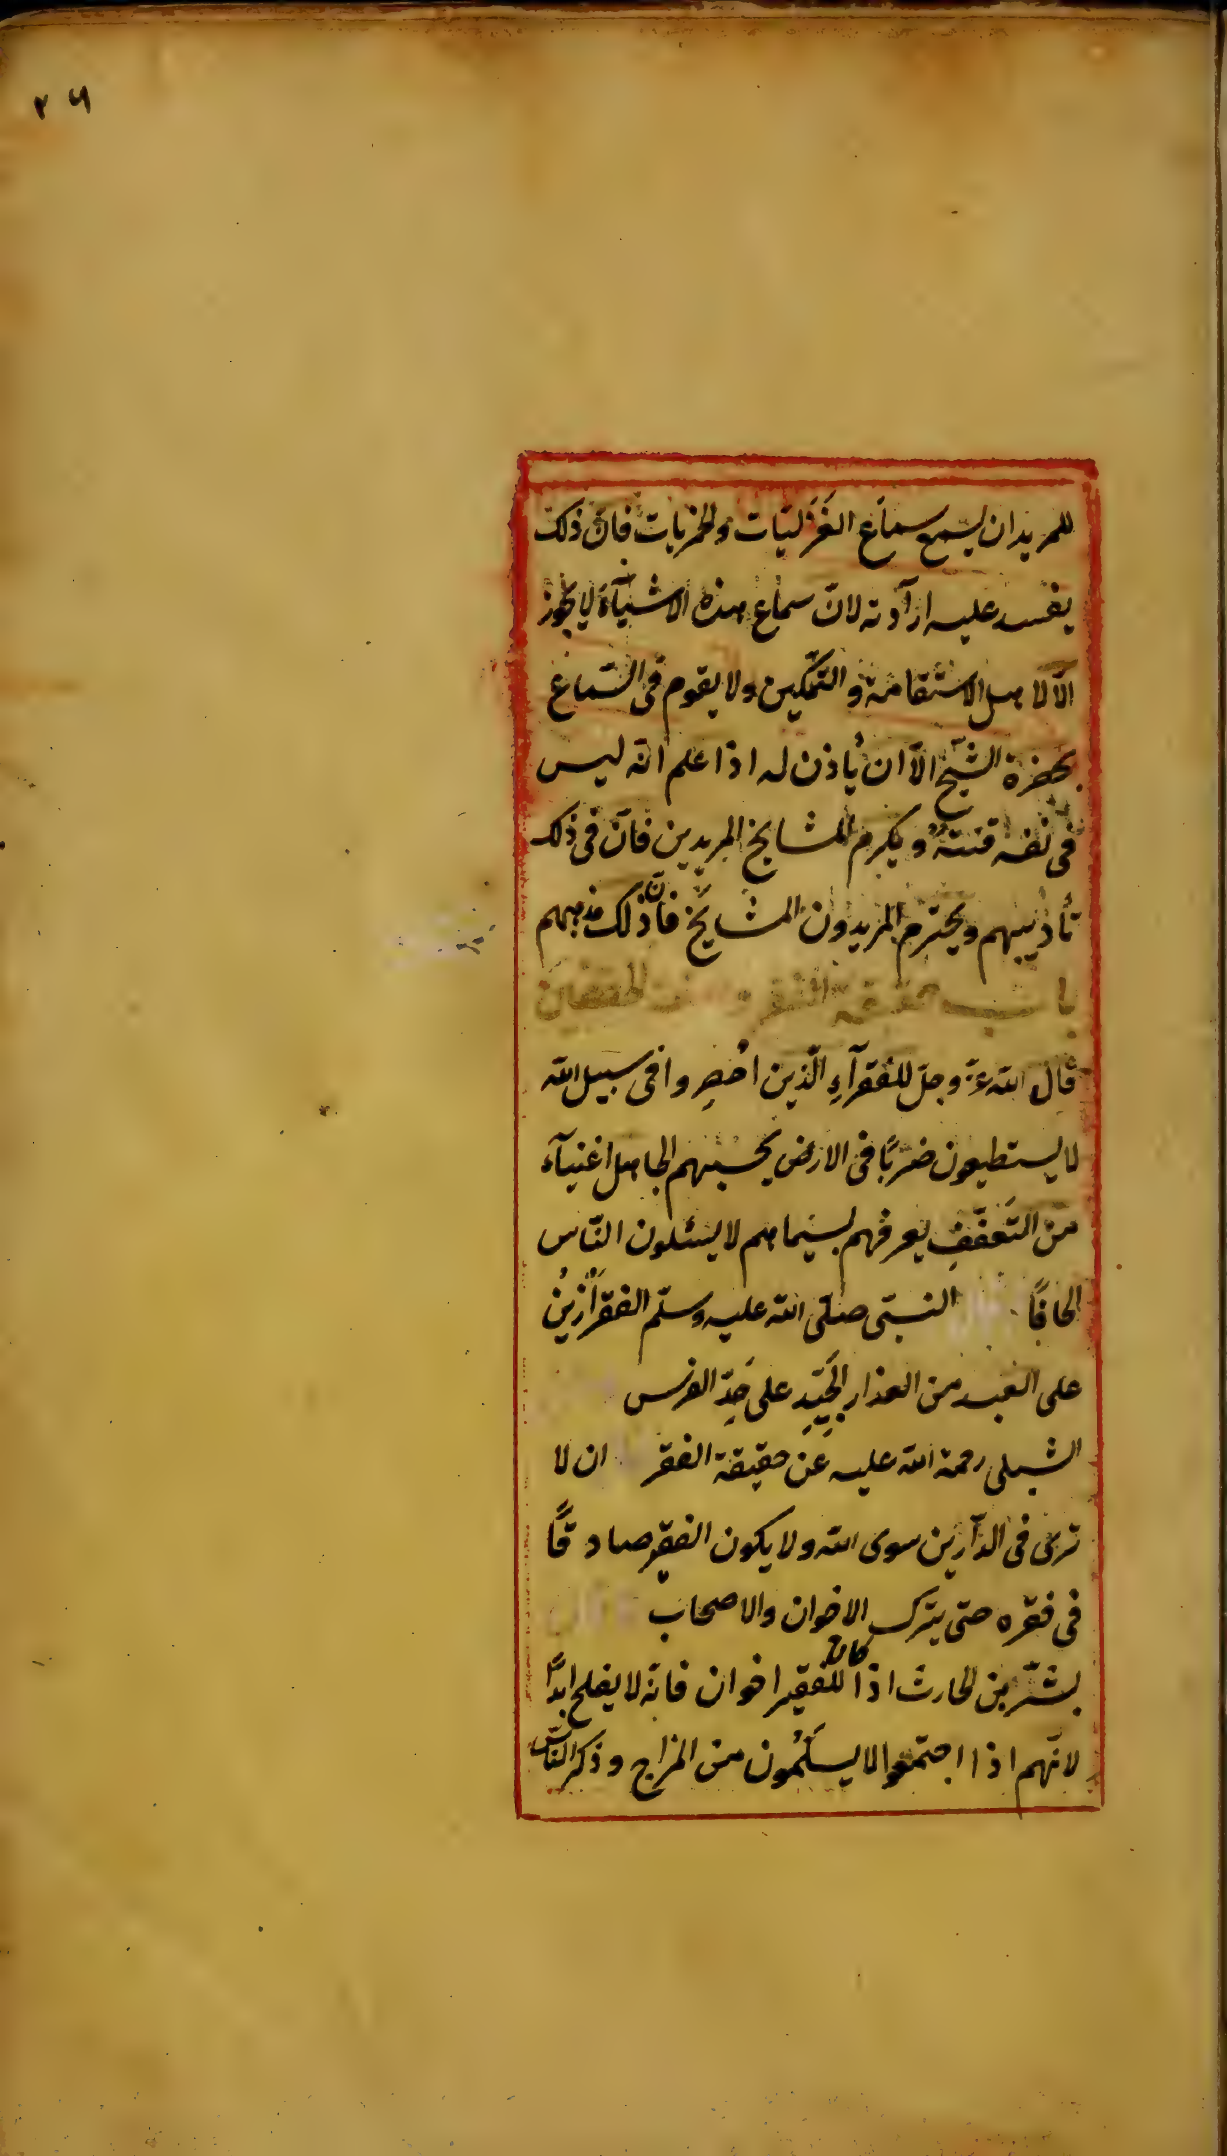 ٢٦
للمريد ان يسمع سماع الغَزَليّات والخمريات فانّ ذلك
يفسد عليه ارآدته لانّ سماع هذه الاشيآءَ لا يجوز
الّا لاهل الاستقامة والتمّكين ولا يقوم فى السّماع
بحضرة الشيخ الّا ان يُاذن له اذا علم انّه ليس
فى نفسه فتنة ويكرم المشايخ المريدين فانّ فى ذلك
تأديبهم ويحترم المريدون المشايخ فانّ ذلك مذهبهم
باب حقيقة الفقر
قال الله عزّ وجلّ للفقرآءِ الّذين احُصِروا فى سبيل الله
لا يستطيعون ضربًا فى الارض يحسبهم الجاهل اغنيآء
من التَعفّفِ يعرفهم بسيماهم لا يسئلون النّاس
الحافًا النبىّ صلّى الله عليه وسلّم الفقرُ ازينُ
على العبد من العذار الجَيِّدِ على خدِّ الفرس
الشبلى رحمة الله عليه عن حقيقة الفقر ان لا
ترى فى الدآرين سوى الله ولا يكون الفقير صادقًا
فى فقره حتى يترك الاخوان والاصحاب
بشر بن الحارث اذا كان للفقير اخوان فانّه لا يفلح ابدًا
لانّهم اذا اجتمعوا لا يسلَمُون من المزاح وذكر النّاس